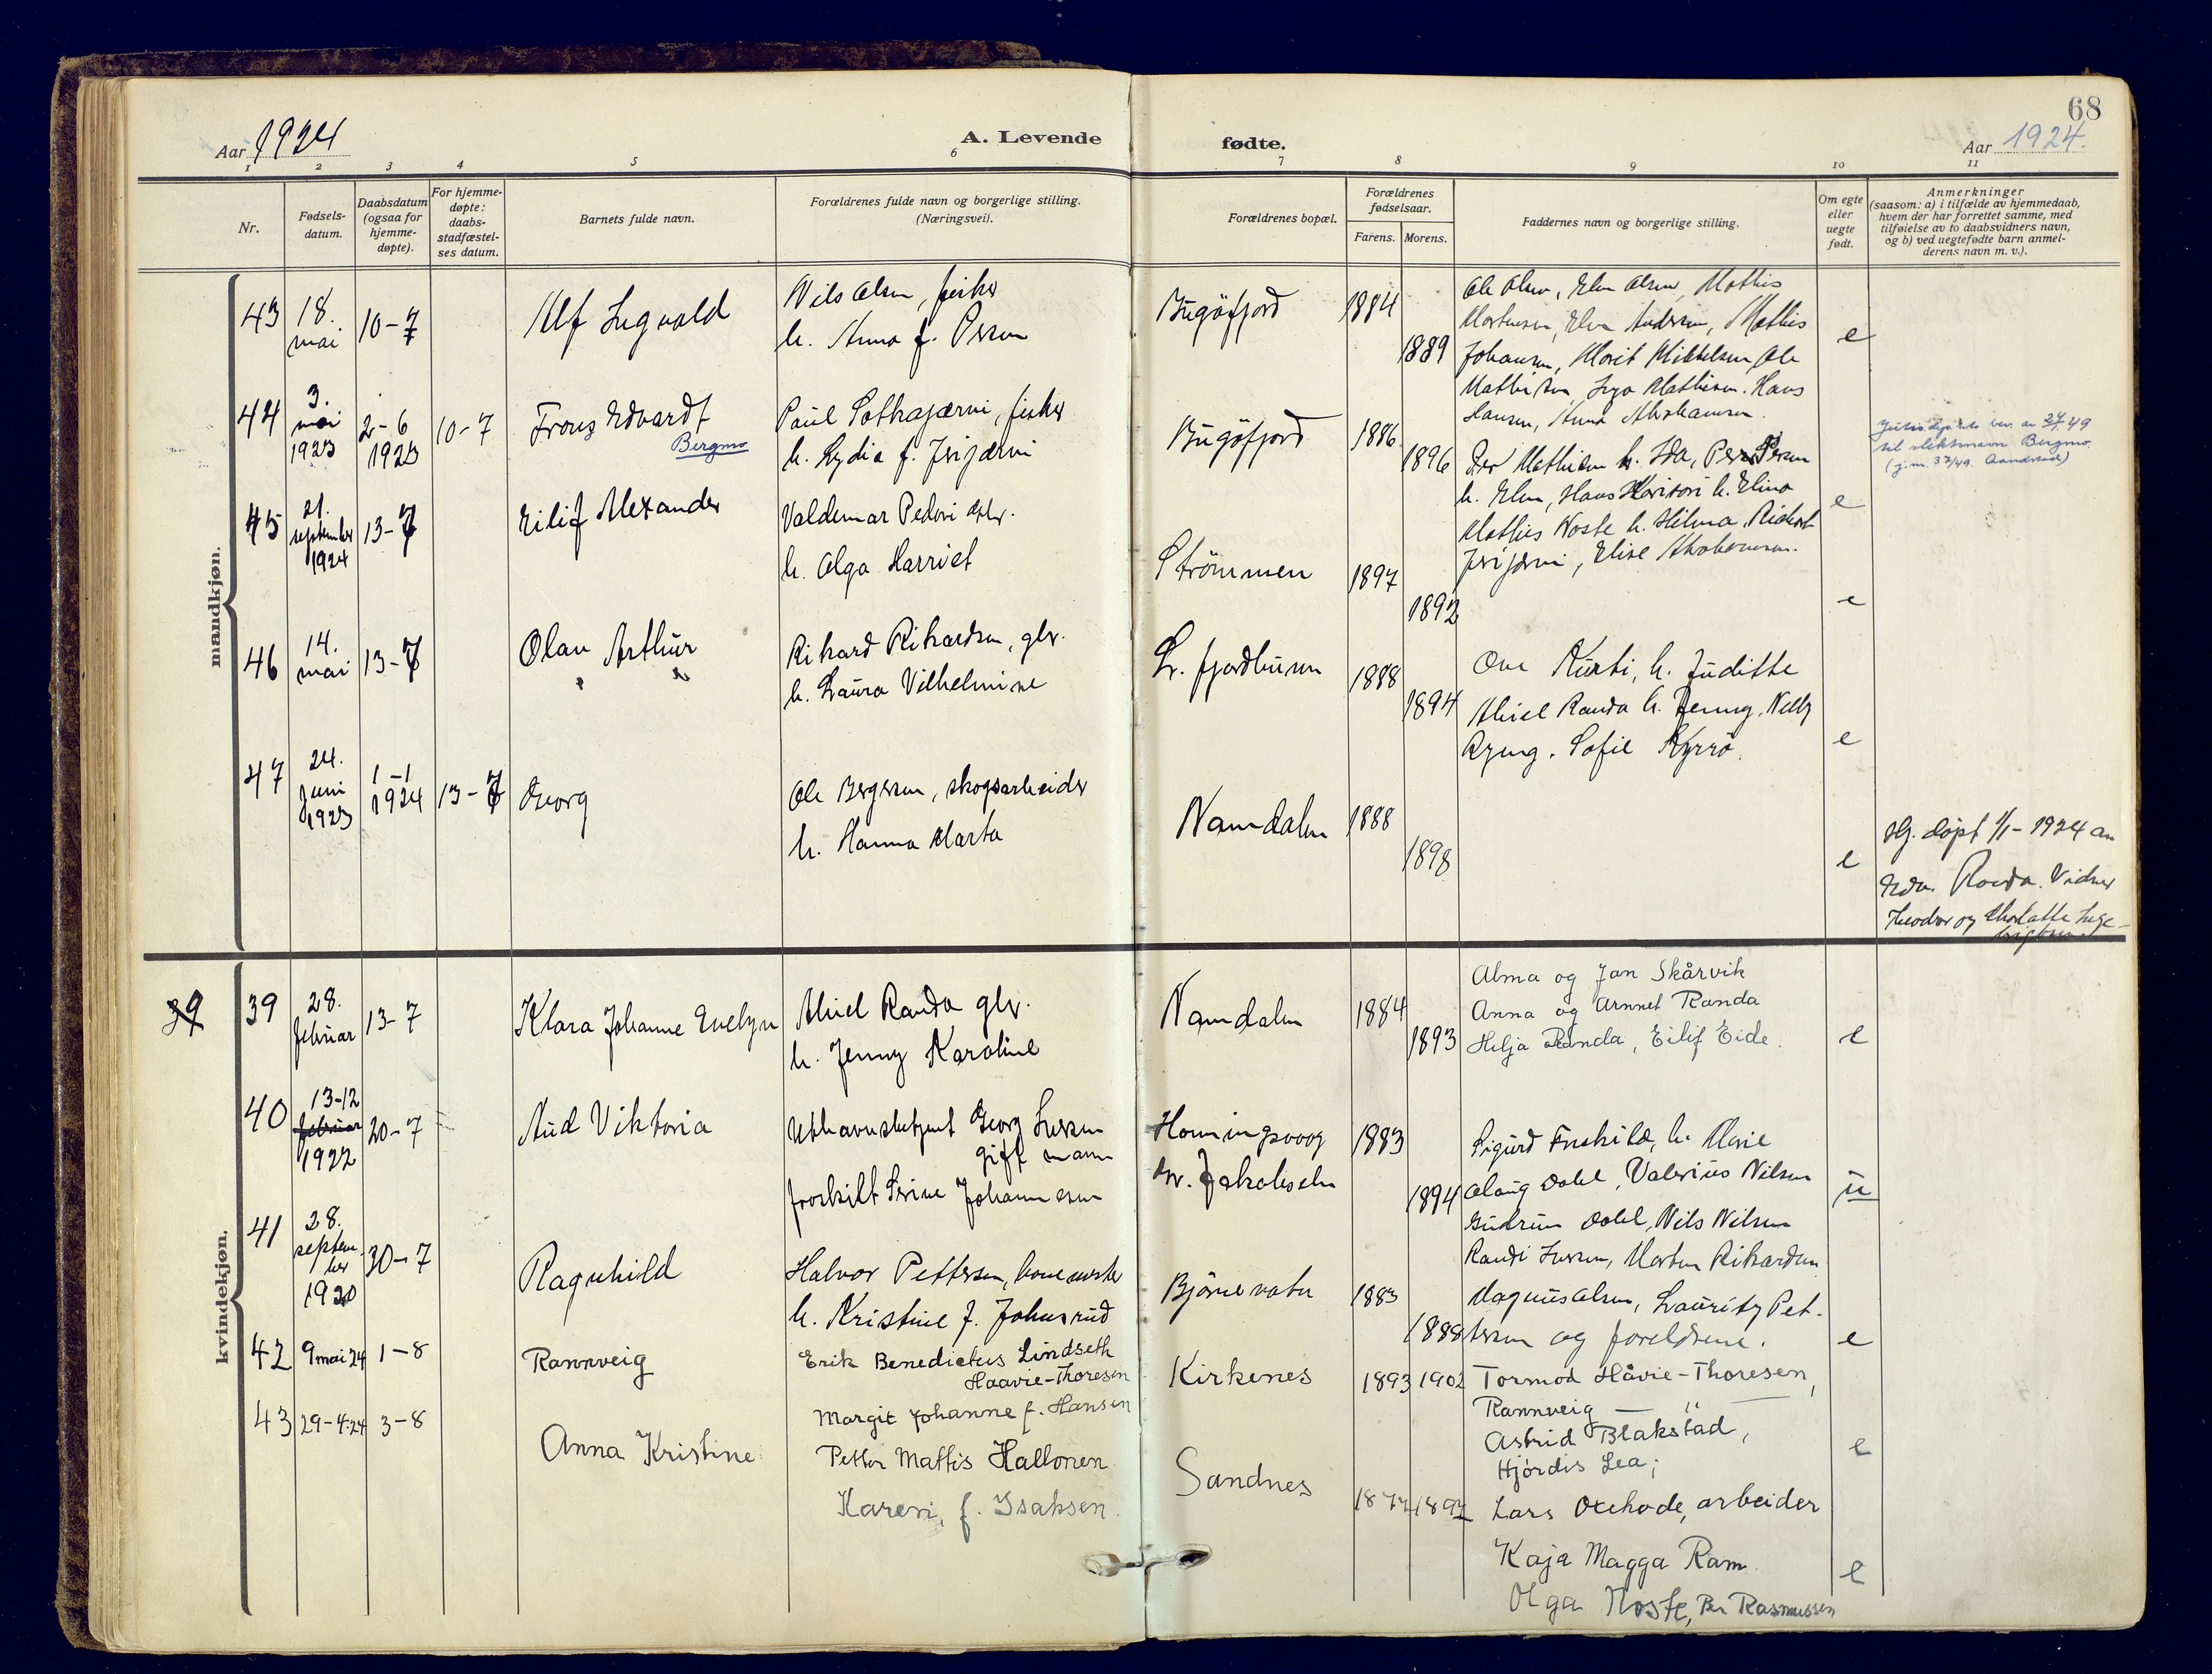 68
Aar 1924
A. Levende
fødte.
Aar 1924.
1 2 3 4 5 6 7 8 9 10 11
Nr.
Fødsels-
datum.
Daabsdatum
(ogsaa for
hjemme-
døpte).
For hjemme-
døpte:
daabs-
stadfæstel-
ses datum.
Barnets fulde navn.
Forældrenes fulde navn og borgerlige stilling.
(Næringsvei).
Forældrenes bopæl.
Forældrenes
fødselsaar.
Farens. Morens.
Faddernes navn og borgerlige stilling.
Om egte
eller
uegte
født.
Anmerkninger
(saasom: a) i tilfælde av hjemmedaab,
hvem der har forrettet samme, med
tilføielse av to daabsvidners navn,
og b) ved uegtefødte barn anmel-
derens navn m. v.).
mandkjøn.
43
18.
mai
10-7
Alf Ingvald
Nils Olsen, fisker
h. Anna f. Persen
Bugöfjord
1884
1889
Ole Olsen, Elen Olsen, Mathis
Mortensen, Elen Andersen, Mathis
Johansen, Marit Mikkelsen, Ole
Mathisen, Inga Mathisen. Hans
Hansen, Anna Abrahamsen.
e
44
3.
mai
1923
2-6
1923
10-7
Frans Edvardt
Bergmo
Paul Sotkajærvi, fisker
h. Lydia f.
Bugöfjord
1886
1896
Per Mathisen h. Ida, Per Persen
h. Elen, Hans h. Elina
Mathis Noste h. Hilma, Rickart
Elise Abrahamsen.
e
til slektsnavn Bergmo
45
21.
september
1924
13-7
Eilif Alexander
Valdemar Pedori
h. Olga Harriet
Strömmen
1897
1892
e
46
14.
mai
13-7
Olav Arthur
Rikard Rikardsen, gbr.
h. Laura Vilhelmine
L. fjordbunn
1888
1894
Ove Kurti, h. Juditte
Abiel Randa h. Jenny, Nelly
Ryeng. Sofie Kyrrö.
e
47
24.
juni
1923
1-1
1924
13-7
Georg
Ole Bergersen, skogsarbeider
h. Hanna Marta
Namdalen
1888
1898
e
Hj. döpt 1/1-1924 av
Edv. Randa. Vidner
Theodor og Charlotte Inge-
brigtsen.
kvindekjøn.
39
39
28.
februar
13-7
Klara Johanne Evelyn
Abiel Randa gbr.
h. Jenny Karoline
Namdalen
1884
1893
Alma og Jan Skårvik
Anna og Arnnet Randa
Helja Randa, Eilif Eide.
e
40
13-12
februar
1922
20-7
Aud Viktoria
Georg Iversen
gift mann
fraskilt Serine Johannesen
Honningsvaag
Jakobselv
1883
1894
Sigurd h. Marie
Olaug Dahl, Valerius Nilsen
Gudrun Dahl, Nils Nilsen
Randi Iversen, Morten Rikardsen
u
41
28.
septem
ber
1920
30-7
Ragnhild
Halvor Pettersen,
h. Kristine f. Johnsrud
Björnevatn
1883
1888
Magnus Olsen, Lauritz Pet-
tersen og foreldrene.
e
42
9 mai 24
1-8
Rannveig
Erik Benedictus Lindseth
Haavie-Thoresen
Margit Johanne f. Hansen
Kirkenes
1893
1902
Tormod Håvie-Thoresen,
Rannveig — " —
Astrid Blakstad,
Hjördis Lea;
e
43
29-4-24
3-8
Anna Kristine
Petter Mattis Hallonen
Karen, f. Isaksen.
Sandnes
1877
1897
Lars Oxehode, arbeider
Kaja Magga Ram
Olga Noste, Per Rasmussen
e